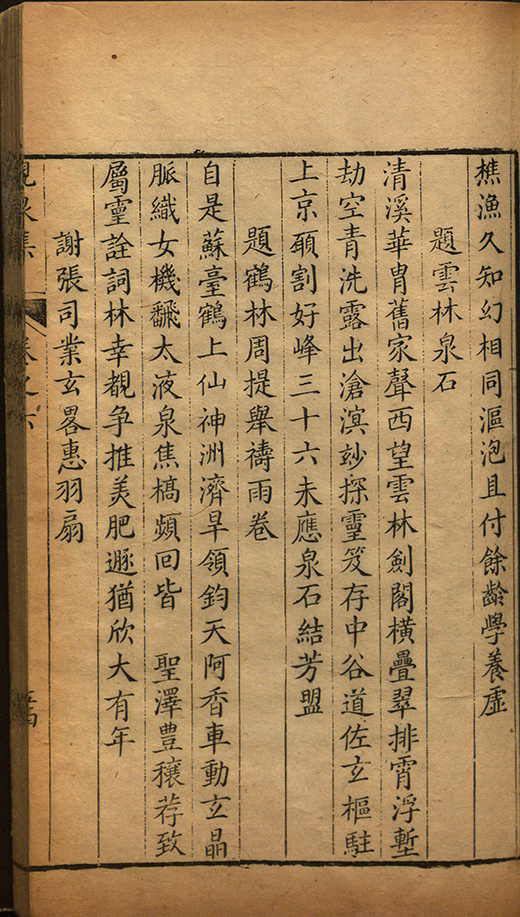 樵漁久知幻相同漚泡且付餘齡學養虛
題雲林泉石
清溪華胄舊家聲西望雲林劍閣橫疊翠排霄浮塹
劫空青洗露出滄溟妙探靈笈存中谷道佐玄樞駐
上京頤割好峰三十六未應泉石結芳盟
題鶴林周提舉禱雨卷
自是蘇臺鶴上仙神洲濟旱領鈞天阿香車動玄晶
脈織女機飜太液泉焦槁頻回皆 聖澤豊穰荐致
屬靈詮詞林幸覩爭推美肥遯猶欣大有年
謝張司業玄畧惠羽扇
峴泉集 卷之六